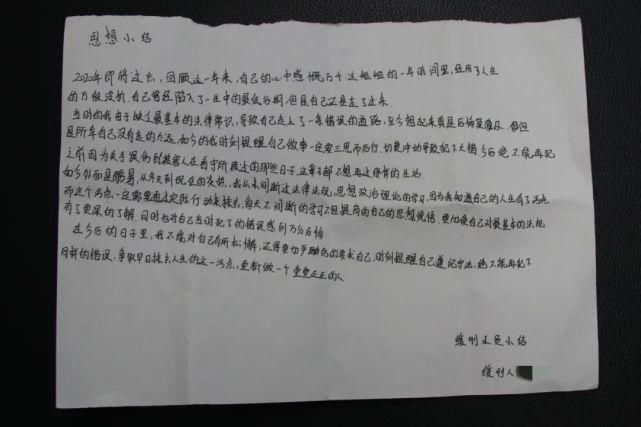 思想小结
2020年即将过去，回顾这一年来，自己的心中感慨万千，这短短的一年时间里，经历了人生
的万般波折，自己曾经陷入了一生中的最低谷期，但是自己还是走了过来。
当时的我由于缺乏最基本的法律常识，导致自己走上了一条错误的道路，至今想起来真是后悔莫及，但
是所幸自己没有走的太远，如今的我时刻提醒自己做事一定要三思而后行，切莫冲动导致犯下大错，今后绝不能再犯
之前因为失手误伤到被害人在看守所度过的那些日子，这辈子都不想再过那样的生活
如今外面是，从冬天到现在的炎热，我从未间断过法律法规，思想政治理论的学习，因为我知道自己的人生有了污点
而这个污点一定需要面这定行动来抹去，每天不间断的学习不但提高的自己的思想觉悟，更加使自己对最基本的法规
有了更深的了解，同时也对自己当时犯下的错误感到万分后怕
在今后的日子里，我不能对自己有所松懈，还得更加严的要求自己，时刻提醒自己遵纪守法，绝不能再犯下
同样的错误，争取早日抹去人生的这一污点，重新做一个堂堂正正的人
缓刑人员小结
缓刑人